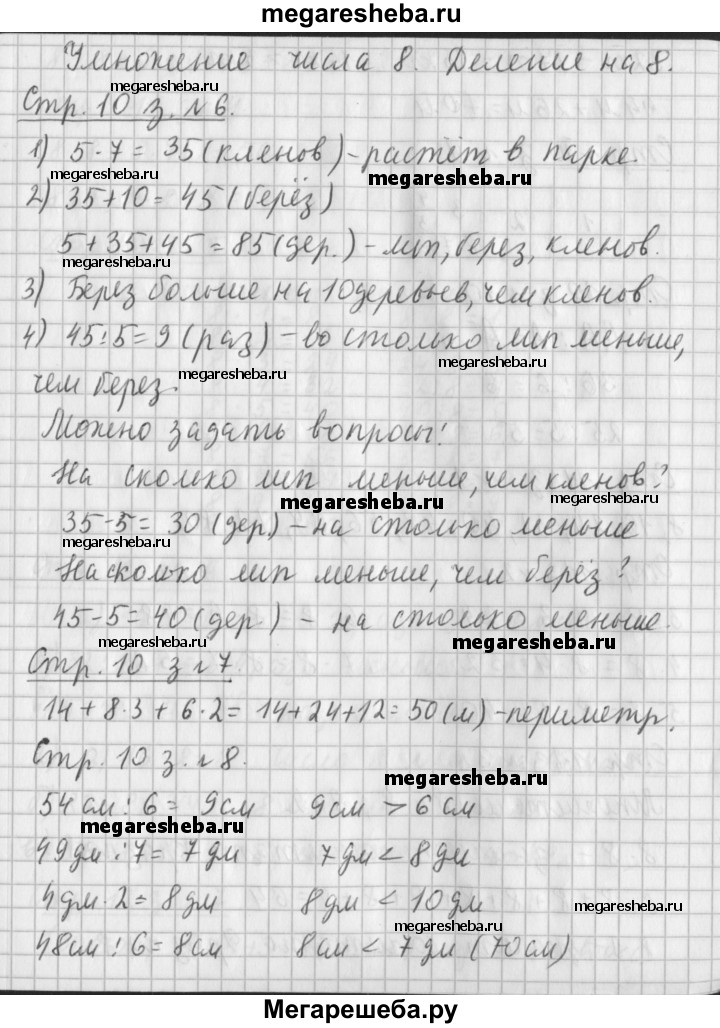 megaresheba.ru
Умножение числа 8. Деление на 8.
megaresheba.ru
Стр. 10 з. №6.
1) 5·7= 35(кленов)-растёт в парке.
megaresheba.ru megaresheba.ru
2) 35+10= 45(берёз)
5+35+45=85(дер.)-лип, берез, кленов.
megaresheba.ru
3) Берез больше на 10 деревьев, чем кленов.
4) 45:5=9 (раз) -во столько лип меньше,
megaresheba.ru
чем берез.
Можно задать вопросы:
На сколько лип меньше, чем кленов?
megaresheba.ru megaresheba.ru
35-5= 30(дер.)-на столько меньше
megaresheba.ru
На сколько лип меньше, чем берёз?
45-5=40(дер.) - на столько меньше.
megaresheba.ru megaresheba.ru
Стр. 10 з №7.
14+8·3+6·2= 14+24+12=50(м)-периметр.
Стр. 10 з. №8.
megaresheba.ru
54см:6= 9см 9см > 6см
megaresheba.ru
49дм:7= 7дм 7дм < 8дм
4дм·2= 8дм 8дм < 10дм
megaresheba.ru megaresheba.ru
48см:6=8см 8см < 7дм (70см)
Мегарешеба.ру